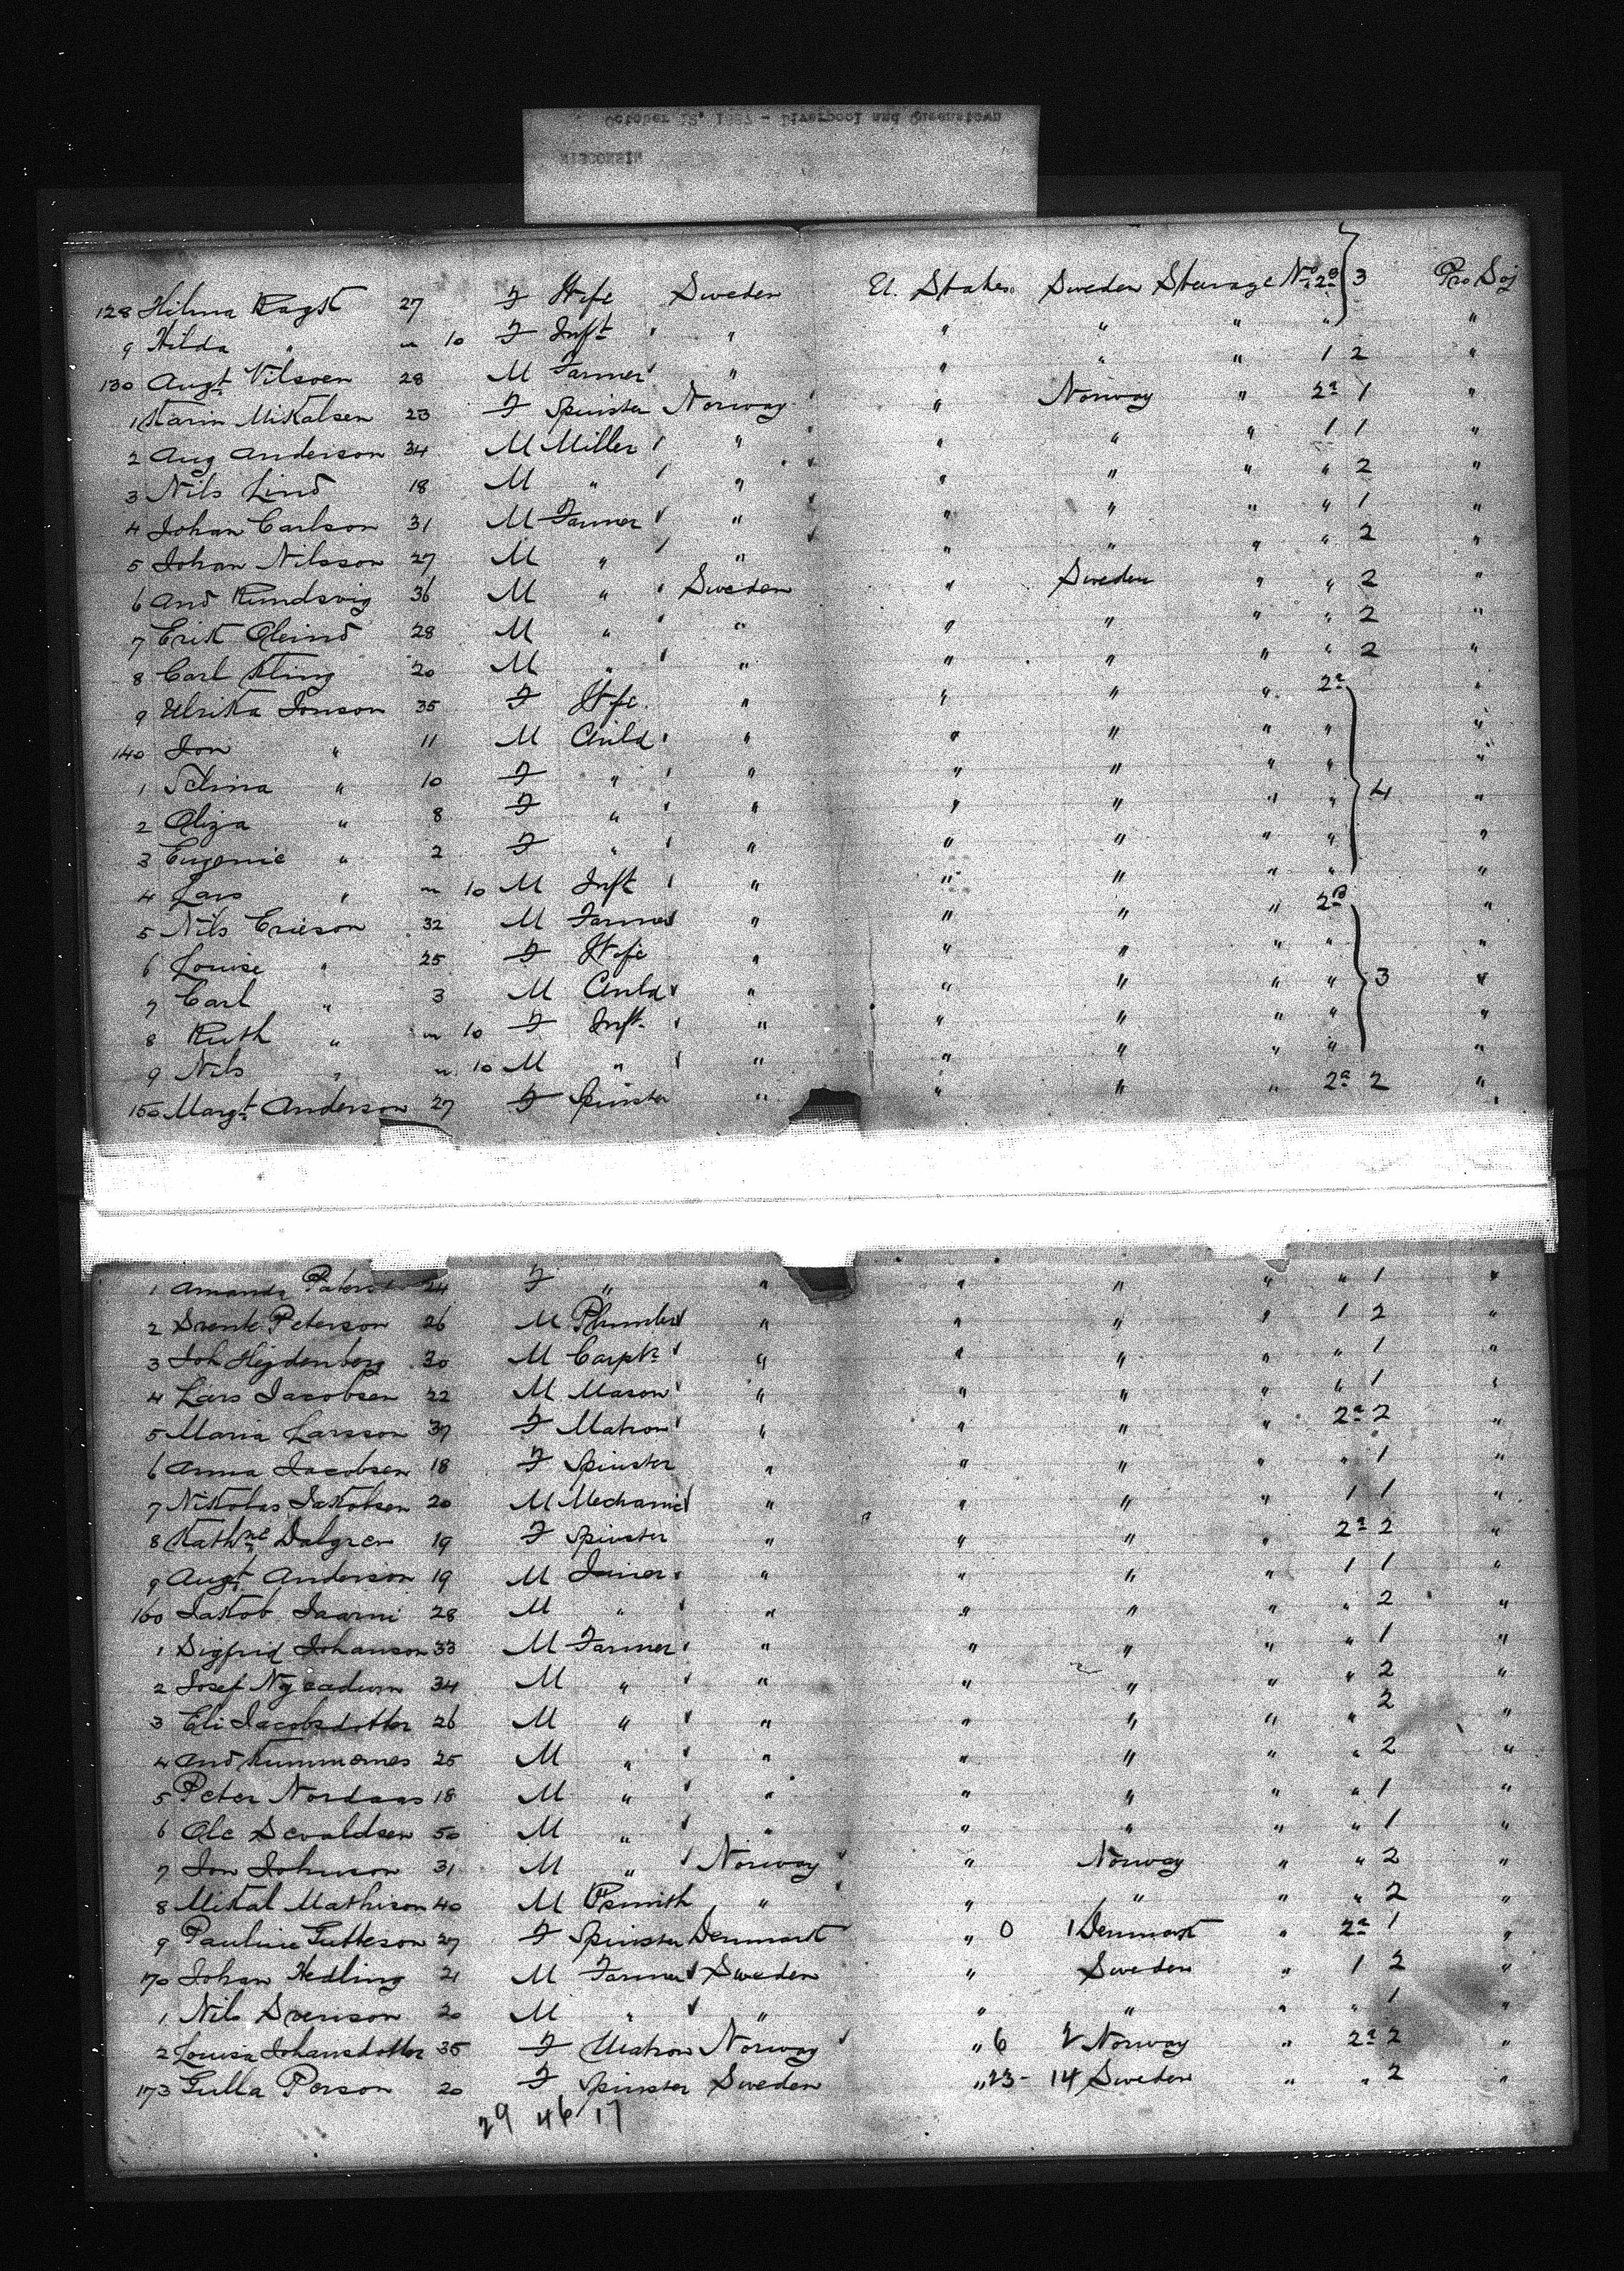 October 12, 1887 - Liverpool and Queenstown
WISCONSIN
128 Hilma Ragst 27 F Wife Sweden U. States Sweden Steerage No 2a 3 Pro Soj
9 Hilda " m 10 F Inft " " " " " "
130 Augt Nilsoen 28 M Farmer " " " " 1 2 "
1 Karin Mikalsen 23 F Spinster Norway " Norway " 2a 1 "
2 Aug Anderson 34 M Miller " " " " 1 1 "
3 Nils Lind 18 M " " " " " " 2 "
4 Johan Carlson 31 M Farmer " " " " " 1 "
5 Johan Nilsson 27 M " " " " " " 2 "
6 And Rundsvig 36 M " Sweden " Sweden " " 2 "
7 Erik Oleind 28 M " " " " " " 2 "
8 Carl Kling 20 M " " " " " " 2 "
9 Ulrika Jonson 35 F Wife " " " " 2a "
140 Jon " 11 M Child " " " " " "
1 Selina " 10 F " " " " " " "
2 Eliza " 8 F " " " " " " 4 "
3 Eugenie " 2 F " " " " " " "
4 Lars " m 10 M Inft " " " " " "
5 Nils Ericson 32 M Farmer " " " " 2B "
6 Louise " 25 F Wife " " " " " "
7 Carl " 3 M Child " " " " " 3 "
8 Ruth " m 10 F Inft " " " " " "
9 Nils " m 10 M " " " " " " "
150 Margt Anderson 27 F Spinster " " " " 2a 2 "
1 Amanda 24 F " " " " " " 1 "
2 Svente Peterson 26 M Plumber " " " " 1 2 "
3 Joh Hejdenberg 30 M Carptr " " " " " 1 "
4 Lars Jacobsen 22 M Mason " " " " " 1 "
5 Maria Larsson 37 F Matron " " " " 2a 2 "
6 Anna Jacobsen 18 F Spinster " " " " " 1 "
7 Nikolas Jakobsen 20 M Mechanic " " " " 1 1 "
8 Kathne Dalgren 19 F Spinster " " " " 2a 2 "
9 Augt Anderson 19 M Joiner " " " " 1 1 "
160 Jakob Saarni 28 M " " " " " " 2 "
1 Sigfrid Johanson 33 M Farmer " " " " " 1 "
2 Josef 34 M " " " " " " 2 "
3 Eli Jacobsdotter 26 M " " " " " " 2 "
4 And Kummernes 25 M " " " " " " 2 "
5 Peter Nordaas 18 M " " " " " " 1 "
6 Ole Sevaldsen 50 M " " " " " " 1 "
7 Jon Johnson 31 M " Norway " Norway " " 2 "
8 Mikal Mathison 40 M Bsmith " " " " " 2 "
9 Pauline Gutteson 27 F Spinster Denmark " 0 1 Denmark " 2a 1 "
170 Johan Hedling 21 M Farmer Sweden " Sweden " 1 2 "
1 Nils Svenson 20 M " " " " " " 1 "
2 Louisa Johansdotter 35 F Matron Norway " 6 2 Norway " 2a 2 "
173 Gulla Person 20 F Spinster Sweden " 23 - 14 Sweden " " 2 "
29 46 17